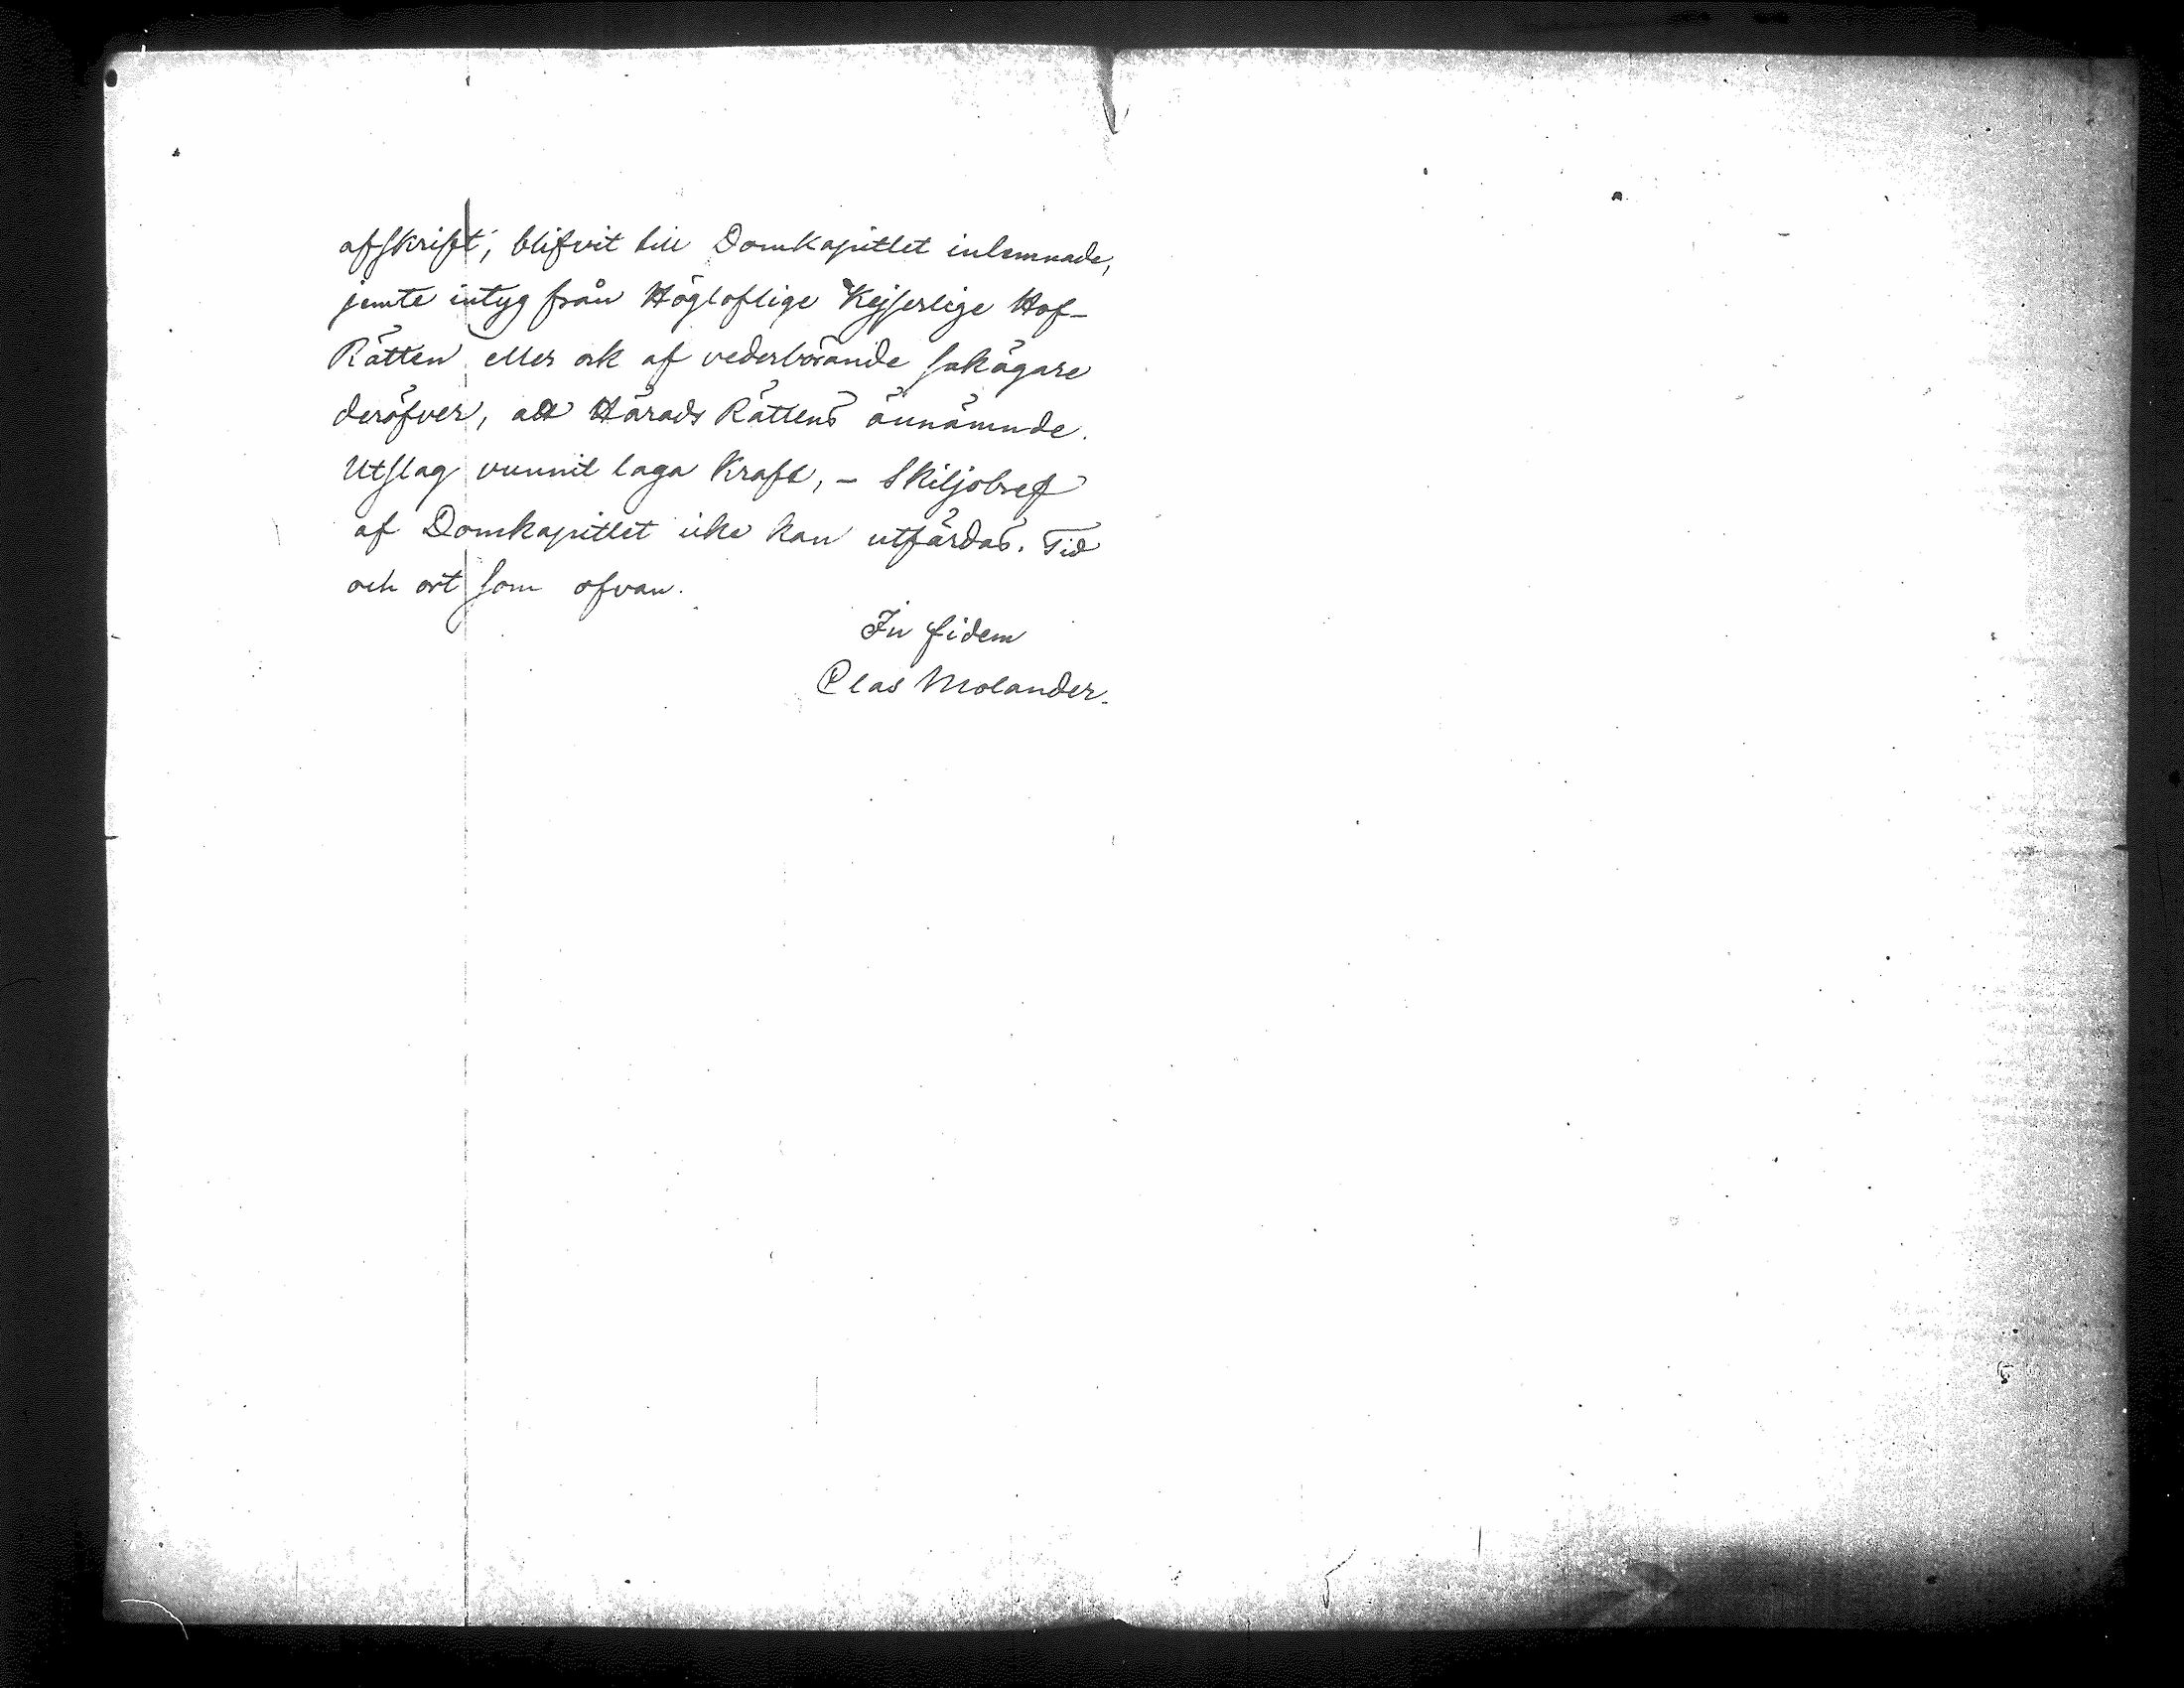 afskrift, blifvit till Domkapitlet inlemnade,
jemte intyg från Höglofliga Kejserliga Hof-
Rätten eller ock af vederbörande sakägare
deröfver, att Härads Rättens ännämnde
Utslag vunnit laga kraft, – Skiljobref
af Domkapitlet icke kan utfärdas. Tid
och ort som ofvan.
In fidem
Clas Molander.